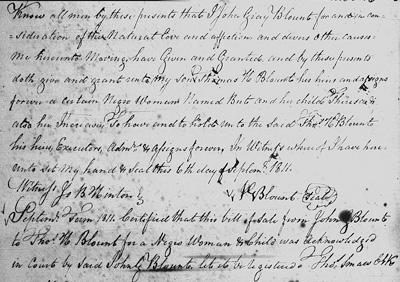 Know all men by these presents that I John Gray Blount for and in con-
sideration of the Natural Love and affection and divers other causes
me hereunto Moving, have Given and Granted and by these presents
doth give and grant unto my Son Thomas H Blount his heirs and assigns
forever a certain Negro Woman Named Bett and her child Theresa &
also her Increase, To have and to hold unto the said Thos. H Blount to
his heirs, Executors, Admrs. & assigns forever, In Witness whereof I have here-
unto set my hand & Seal this 6th day of Septemr. 1811.
Witness Jo B Hinton } JG Blount (Seal)
Septemr. Term 1811 Certified that this bill of Sale from John G Blount
to Thos. H Blount for a Negro Woman & Child was acknowledged
in Court by said John G Blount. let it be registered Thos. Smaw Clk